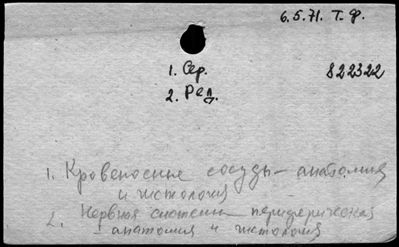 6.5.71. Т. ф.
1. Сер. 822322
2. Ред.
1. Кровеносные сосуды – анатомия
и гистология
2. Нервная система периферическая
анатомия и гистология